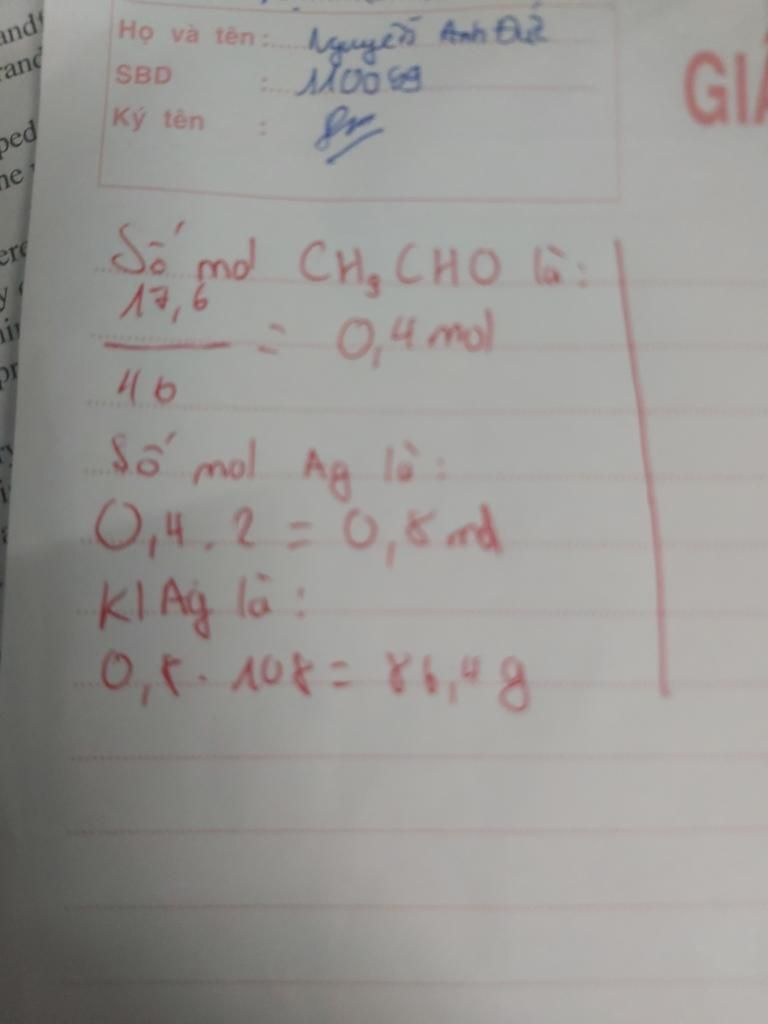 Họ và tên: Nguyễn Anh
SBD : 110059
Ký tên :
GIẤ
Số mol CH3CHO là:
17,6
= 0,4 mol
46
Số mol Ag là:
0,4 . 2 = 0,8 mol
Kl Ag là:
0,8 . 108 = 86,4 g
and
rand
ped